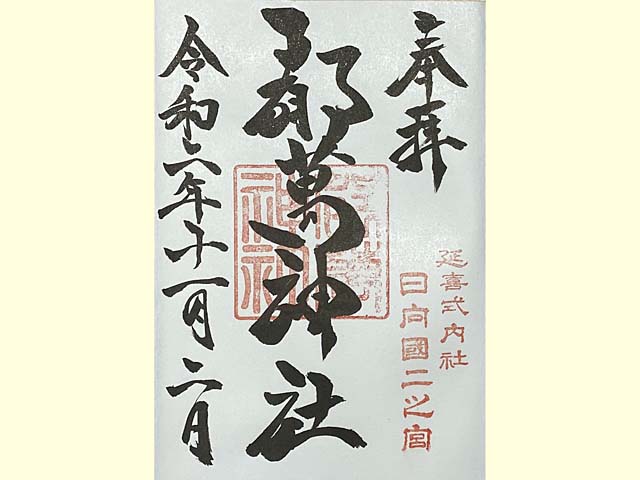 奉拝
延喜式内社
日向國二之宮
都萬神社
令和六年十一月二日